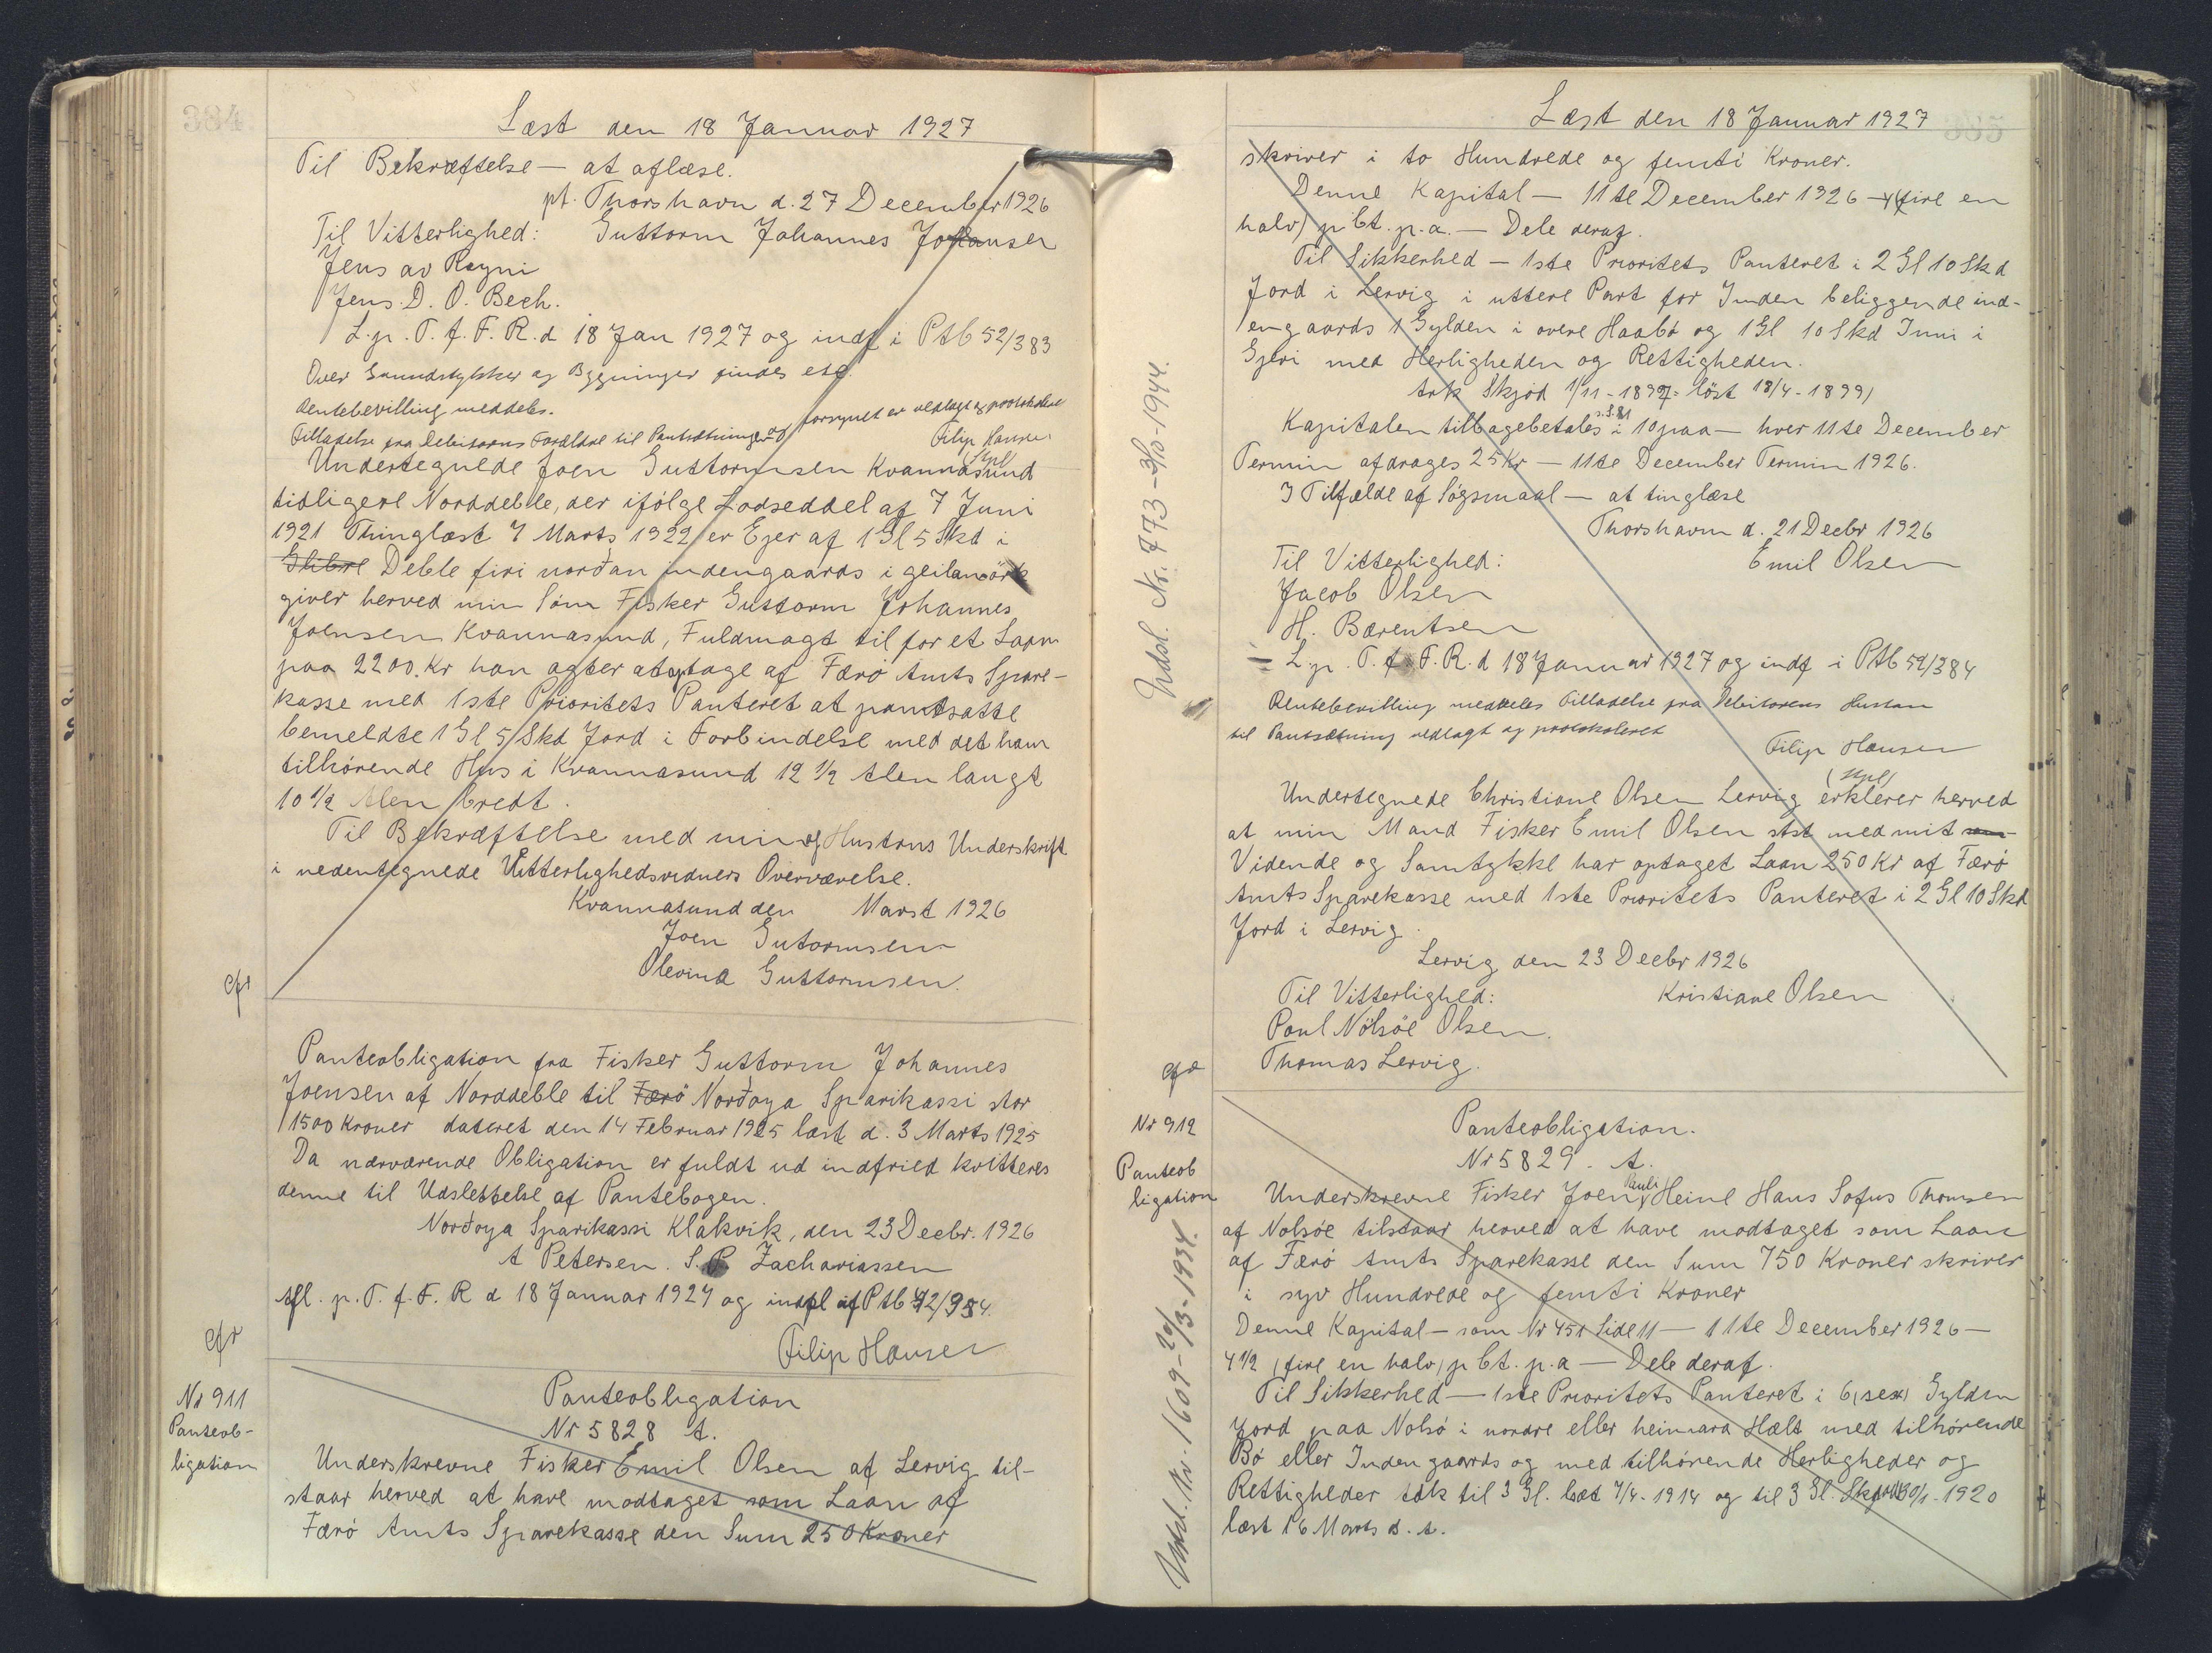 384
Læst den 18 Januar 1927
Til Bekræftelse — at aflæse.
pt. Thorshavn d. 27 December 1926
Til Vitterlighed: Guttorm Johannes Johansen
Jens av Reyni
Jens. D. O. Bech.
L. p. T. f. F. R. d 18 Jan 1927 og indf i Ptb 52/383
Over Grundstykker og Bygninger findes etc.
Rentebevilling meddeles.
Tilladelse fra Debitorens Forældre til Pantsætningen og forsynet er vedlagt og protokolleret
Filip Hansen
Undertegnede Joen Guttormsen Kvannasund
tidligere Norddeble, der ifölge Lodseddel af 7 Juni
1921 Thinglæst 7 Marts 1922 er Ejer af 1 Gl 5 Skd i
Deble firi norðan indengaards i geilamörk
giver herved min Sön Fisker Guttorm Johannes
Joensen Kvannasund, Fuldmagt til for et Laan
paa 2200. Kr han agter at optage af Færö Amts Spare-
kasse med 1ste Prioritets Panteret at pantsatte
bemeldte 1 Gl 5 Skd Jord i Forbindelse med det ham
tilhörende Hus i Kvannasund 12 ½ Alen langt
10 ½ Alen bredt.
Til Bekræftelse med min og Hustrus Underskrift
i nedentegnede Vitterlighedsvidners Overværelse.
Kvannasund den Marst 1926
Joen Gutormsen
Olevina Guttormsen.
cfr
Panteobligation fra Fisker Guttorm Johannes
Joensen af Norddeble til Færö Norðoya Sparikassi stor
1500 Kroner dateret den 14 Februar 1925 læst d. 3 Marts 1925
Da nærværende Obligation er fuldt ud indfried kvitteres
denne til Udslettelse af Pantebogen.
Norðoya Sparikassi Klakvik, den 23 Decbr. 1926
A Petersen. S. P. Zachariassen
Afl. p. T. f. F. R d 18 Januar 1927 og
Filip Hansen
cfr
Nr 911
Panteob-
ligation
Panteobligation
Nr 5828 A.
Underskrevne Fisker Emil Olsen af Lervig til-
staar herved at have modtaget som Laan af
Færö Amts Sparekasse den Sum 250 Kroner
385
Læst den 18 Januar 1927
skriver i to Hundrede og femti Kroner.
Denne Kapital — 11te December 1926 — 4½ (fire en
halv) p Ct. p. a. — Dele deraf.
Til Sikkerhed — 1ste Prioritets Panteret i 2 Gl 10 Skd
Jord i Lervig i uttere Part for Inden beliggende ind-
engaards 1 Gylden i overe Haabö og 1 Gl 10 Skd Inni i
Gjeri med Herligheden og Rettigheden.
Atk Skjød 1/11 - 1897 - löst 18/4 - 1899)
Kapitalen tilbagebetales i 10 paa — hver 11te December
Termin afdrages 25 Kr — 11te December Termin 1926.
I Tilfælde af Sögsmaal — at tinglæse
Thorshavn d. 21 Decbr 1926
Til Vitterlighed: Emil Olsen
Jacob Olsen
H. Bærentsen
L. p. T. f. F. R. d 18 Januar 1927 og indf i Ptb 52/384
Rentebevilling meddeles Tilladelse fra Debitorens Hustru
til Pantsætning vedlagt og protokoleret
Filip Hansen
Undertegnede Christiane Olsen Lervig erklerer herved
at min Mand Fisker Emil Olsen stst med mit
Vidende og Samtykke har optaget Laan 250 Kr af Færö
Amts Sparekasse med 1ste Prioritets Panteret i 2 Gl 10 Skd
Jord i Lervig.
Lervig den 23 Decbr 1926
Til Vitterlighed: Kristiane Olsen
Poul Nölsöe Olsen.
Thomas Lervig.
Udsl. Nr. 773 - 3/10 - 1944.
cfr
Nr 912
Panteob
ligation
Panteobligation.
Nr 5829. A.
Underskrevne Fisker Joen Pauli Heine Hans Sofus Thomsen
af Nolsöe tilstaar herved at have modtaget som Laan
af Færö Amts Sparekasse den Sum 750 Kroner skriver
i syv Hundrede og femti Kroner
Denne Kapital — som Nr 451 Side 11 — 11te December 1926 —
4 ½ (fire en halv) p Ct. p. a — Dele deraf.
Til Sikkerhed — 1ste Prioritets Panteret i 6 (sex) Gylden
Jord paa Nolsö i nordre eller heimara Hælt med tilhörende
Bö eller Inden gaards og med tilhörende Herligheder og
Rettigheder atk til 3 Gl. læst 7/4 - 1914 og til 3 Gl. Skjød 30/1 - 1920
læst 16 Marts s. A.
Udsl. Nr. 1609 - 20/3 - 1934.